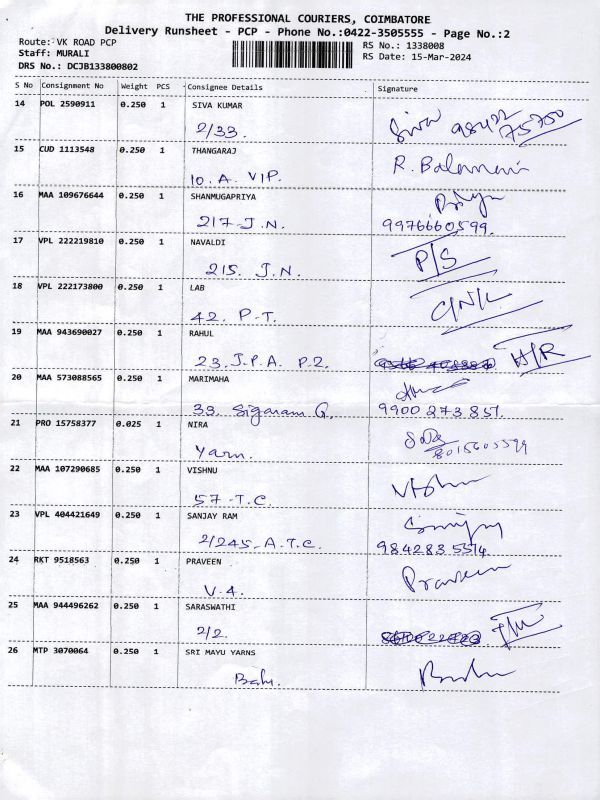 THE PROFESSIONAL COURIERS, COIMBATORE
Delivery Runsheet - PCP - Phone No.:0422-3505555 - Page No.:2
Route: VK ROAD PCP
Staff: MURALI
DRS No.: DCJB133800802
RS No.: 1338008
RS Date: 15-Mar-2024
S No Consignment No Weight PCS Consignee Details Signature
14 POL 2590911 0.250 1 SIVA KUMAR
2/33. Siva 75750
15 CUD 1113548 0.250 1 THANGARAJ
10. A. VIP. R. Balamani
16 MAA 109676644 0.250 1 SHANMUGAPRIYA
217-J.N. 9976660599.
17 VPL 222219810 0.250 1 NAVALDI
215. J.N. P/S
18 VPL 222173800 0.250 1 LAB
42. P-T. C/N/L
19 MAA 943690027 0.250 1 RAHUL
23. J.P.A. P2. H/R
20 MAA 573088565 0.250 1 MARIMAHA
33. Sigaram G. 9900273851.
21 PRO 15758377 0.025 1 NIRA
Yarn. 8015605599
22 MAA 107290685 0.250 1 VISHNU
57-T.C. Vishnu
23 VPL 404421649 0.250 1 SANJAY RAM
2/245-A.T.C. 9842835514.
24 RKT 9518563 0.250 1 PRAVEEN
V.4. Praveen
25 MAA 944496262 0.250 1 SARASWATHI
2/2.
26 MTP 3070064 0.250 1 SRI MAYU YARNS